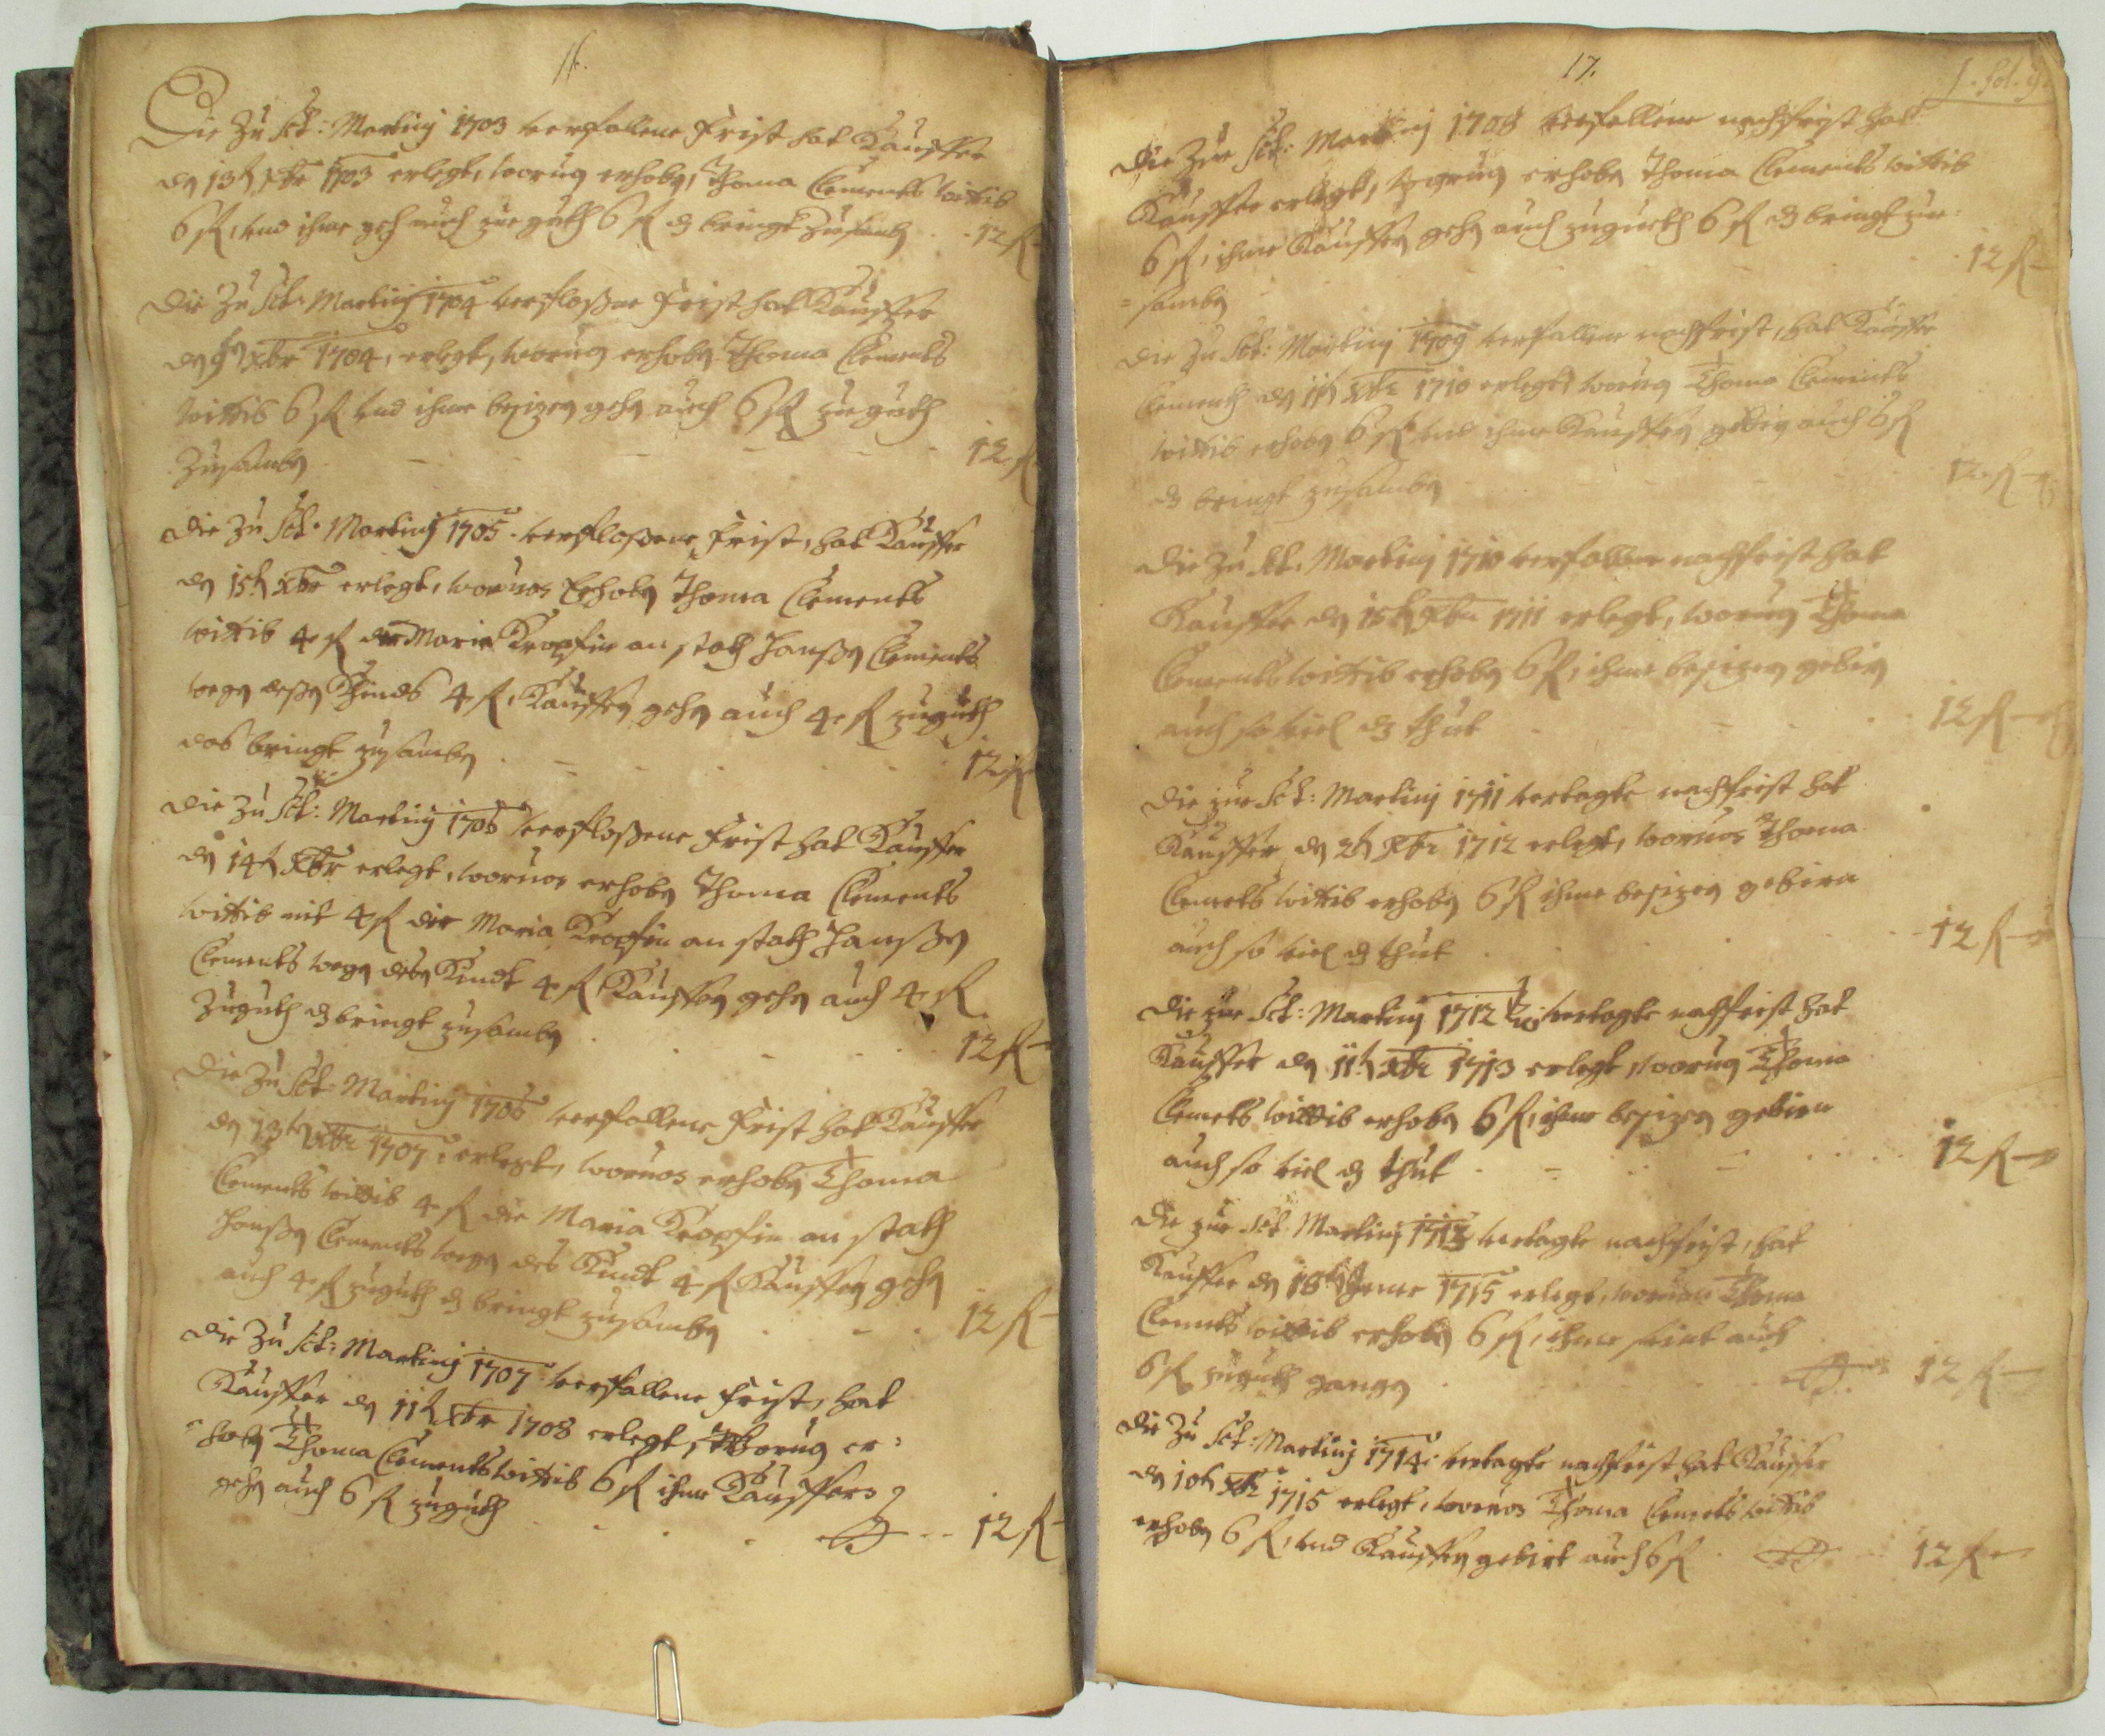 16.
Die Zu Sct: Martinj 1703 verfallene Frist hat Kauffer
den 13t Xbr 1703 erlegt, worun erhoben, Thoma Clements wittib
6 fl, und ihme geh auch zue guth 6 fl dz bringt zusamben 12 fl
Die Zu Sct: Martinj 1704 verfloßene Frist hat Kauffer
den Xbr 1704, erlegt, worun erhoben Thoma Clements
wittib 6 fl und ihme besizern gehen auch 6 fl zue guth
Zusamben 12 fl
Die Zu Sct: Martinj 1705 verfloßene Frist, hat Kauffer
den 15t Xbr erlegt, woruos Erhoben Thoma Clements
wittib 4 fl der Maria Kropfin an stath Hanßen Clements
wegen deßen Kinds 4 fl, Kauffern gehen auch 4 fl zuguth
das bringt zusamben 12 fl
Die Zu Sct: Martinj 1706 verfloßene Frist hat Kauffer
den 14t Xbr erlegt, woruos erhoben Thoma Clements
wittib mit 4 fl die Maria Kropfin an stath Hanßen
Clements wegen deßen Kindt 4 fl Kauffern gehen auch 4 fl
Zuguth dz bringt zusamben 12 fl
Die Zu Sct: Martinj 1706 verfallene Frist hat Kauffer
den 13t Xbr 1707 erlegt, woruos erhoben Thoma
Clements wittib 4 fl die Maria Kropfin an stath
Hanßen Clements wegen des Kindt 4 fl Kauffern gehen
auch 4 fl zuguth dz bringt zusamben 12 fl
Die Zu Sct: Martinj 1707 verfallene Frist, hat
Kauffer den 11t Xbr 1708 erlegt, Worun er=
=hoben Thoma Clements wittib 6 fl ihme Kauffern
gehen auch 6 fl zuguth 12 fl
17.
Die Zue Sct: Martinj 1708 verfallene nachfrist hat
Kauffer erlegt, worun erhoben Thoma Clements wittib
6 fl, ihme Kauffern gehen auch zugueth 6 fl dz bringt zue=
=samben 12 fl
Die Zu Sct: Martinj 1709 verfallene nachfrist, hat Kauffer
Clementh den 11t Xbr 1710 erlegt, worun Thoma Clements
wittib erhoben 6 fl und ihme Kauffern auch 6 fl
dz bringt zusamben 12 fl
Die Zu Sct: Martinj 1710 verfallene nachfrist hat
Kauffer den 15t Xbr 1711 erlegt, worun Thoma
Clements wittib erhoben 6 fl, ihme besizern gebirn
auch so viel dz thut 12 fl
Die zue Sct: Martinj 1711 vertagte nachfrist hat
Kauffer den 2t Xbr 1712 erlegt, woruos Thoma
Clemets wittib erhoben 6 fl ihme besizern gebirn
auch so viel dz thut 12 fl
Die zue Sct: Martinj 1712 vertagte nachfrist hat
Kauffer den 11t Xbr 1713 erlegt, worun Thoma
Clemets wittib erhoben 6 fl, ihme besizern gebirn
auch so viel dz thut 12 fl
Die zue Sct: Martinj 1713 vertagte nachfrist, hat
Kauffer den 18t 1715 erlegt, Thoma
wittib erhoben 6 fl, ihme seint auch
6 fl zuguth gangen 12 fl
Die Zu Sct: Martinj 1714 vertagte nachfrist hat Kauffer
den 10t Xbr 1715 erlegt, woruos Thoma Clemets wittib
erhoben 6 fl, und Kauffern gebirt auch 6 fl 12 fl